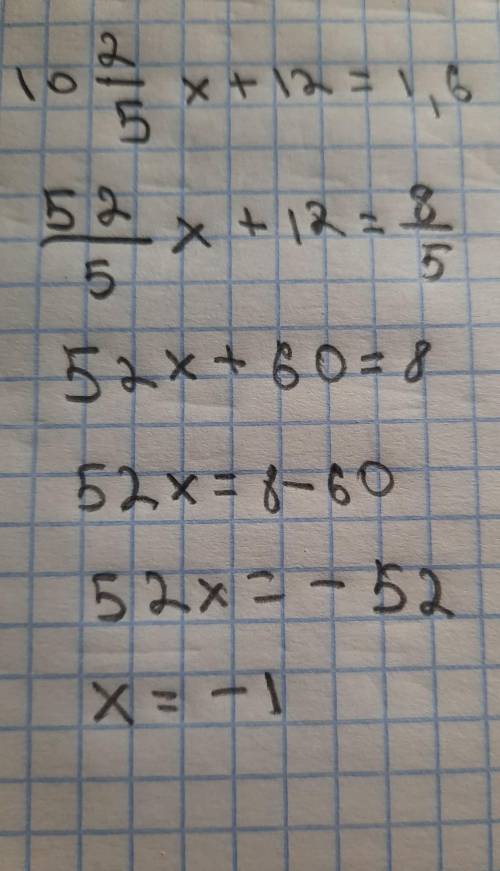 10 2/5 x + 12 = 1,6
52/5 x + 12 = 8/5
52x + 60 = 8
52x = 8 - 60
52x = - 52
x = - 1